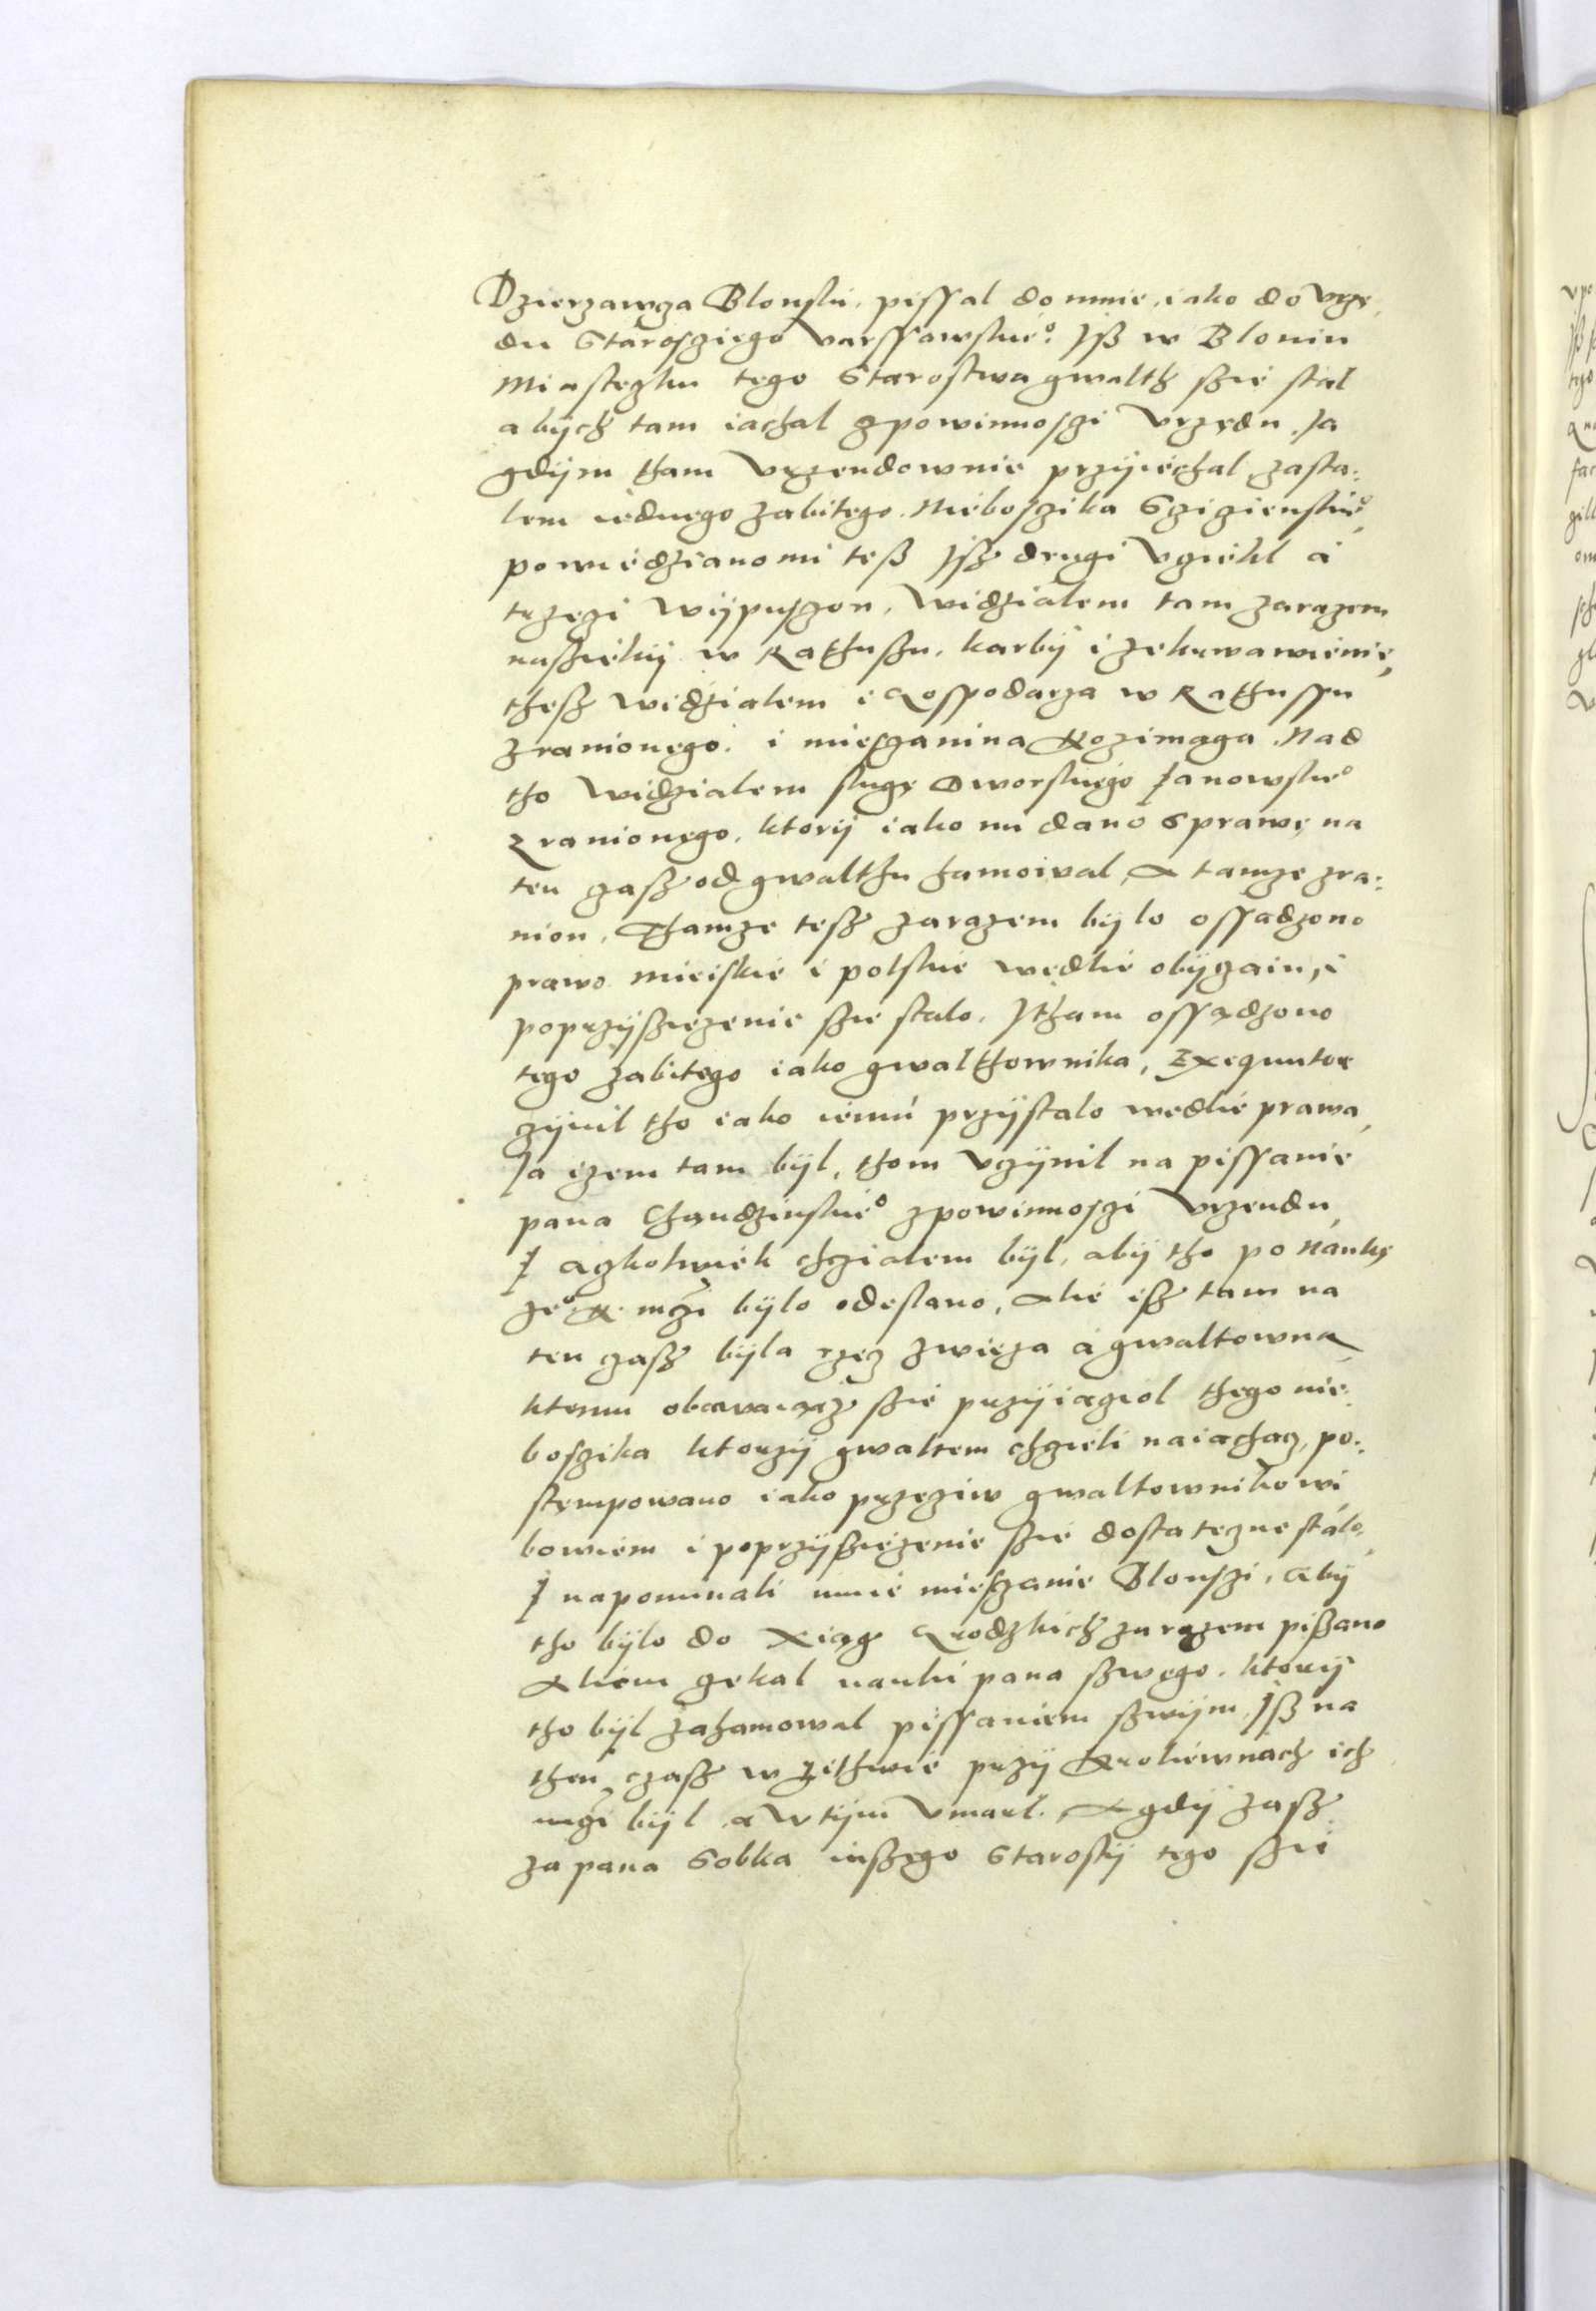 Dzierzawcza Blonski, pissal do mnie, iako do vrzę
du Starosczięgo varssawskie°. Jß w Bloniu
Miasteczku tego Starostwa gwalth ßie stal
abÿch tam iachal zpowinnosczi Vrzędu. Ja
gdÿm tham Vrzendownie przÿiechal zasta:
lem iednego zabitego. Nieboszika Scziczienskie°,
powiedziano mi teß Jsz drugi Vcziekl a
trzeczi wÿpusczon. Widzialem tam zarazem
nasziekÿ w Rathuszu, karbÿ i zekrwawienie,
thesz widzialem i Gospodarza w Rathussu
zranionego. i miesczanina Koczimaga. Nad
tho widzialem slugę Dworskiego Janowskie°
zranionego, ktorÿ iako mi dano sprawę na
ten czasz od gwalthu hamoival, A tamze zra:
nion, Thamze tesz zarazem bÿlo ossadzono
prawo Mieiskie i polskie wedlie obÿczaiu, i
poprzÿßiezenie ßie stalo. J tham ossądzono
tego zabitego iako gwalthownika, Exequutor
czÿnil tho iako iemu przÿstalo wedlie prawa,
Ja izem tam bÿl, thom Vczÿnil na pissanie
pana Chandzinskie° zpowinnosczi Vrzendu,
J aczkolwiek chczialem bÿl, abÿ tho po Naukę
Je° K. mczi bÿlo odeslano, Alie isz tam na
ten czasz bÿla rzecz zwieza a gwaltowna,
ktemu obawaiącz ßie przÿiacziol thego nie:
boszika ktorzÿ gwaltem chczieli naiachacz, po:
stempowano iako przecziw gwaltownikowi
bowiem i poprzÿßiezenie ßie dostateczne stalo,
J napominali mnie miesczanie Blonsczi, abÿ
tho bÿlo do Xiąg Grodzkich zarazem pißano
Aliem czekal nauki pana ßwego, ktorÿ
tho bÿl zahamowal pissaniem ßwÿm, Jß na
then czasz w Lithwie przÿ Kroliewnach ich
mczi bÿl, a wtÿm Vmarl. A gdÿ zasz
za pana Sobka inßzego Starostÿ tego ßie